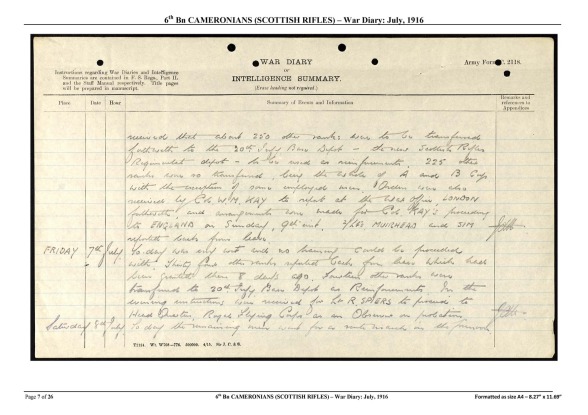 6th Bn CAMERONIANS (SCOTTISH RIFLES) – War Diary: July, 1916
WAR DIARY
or
INTELLIGENCE SUMMARY.
(Erase heading not required.)
Army Form C. 2118.
Instructions regarding War Diaries and Intelligence
Summaries are contained in F. S. Regs., Part II.
and the Staff Manual respectively. Title pages
will be prepared in manuscript.
Place Date Hour Summary of Events and Information Remarks and references to Appendices
received that about 250 other ranks were to be transferred
forthwith to the 20th Infy Base Depot - the new Scottish Rifles
Regimental depot - to be used as reinforcements. 225 other
ranks were so transferred, being the whole of A and B Coys
with the exception of some employed men. Orders were also
received by Col. W.M. KAY to report at the War Office, LONDON
forthwith, and arrangements were made for Col. KAY's proceeding
to ENGLAND on Sunday, 9th inst. MUIRHEAD and SIM
reported back from leave
FRIDAY 7th July To day was wet and no training could be proceeded
with. Thirty other ranks reported back from leave which had
been granted them 8 days ago. Fourteen other ranks were
transferred to 20th Infy Base Depot as Reinforcements. In the
evening instructions were received for Lt. R. SPIERS to proceed to
Head Quarters, Royal Flying Corps as an Observer on probation
Saturday 8th July To day the remaining men went for a route march in the
Page 7 of 26
6th Bn CAMERONIANS (SCOTTISH RIFLES) – War Diary: July, 1916
Formatted as size A4 – 8.27" x 11.69"